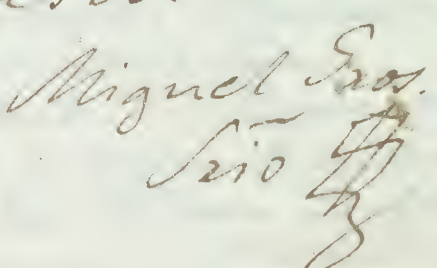 Miguel Gros.
Srio